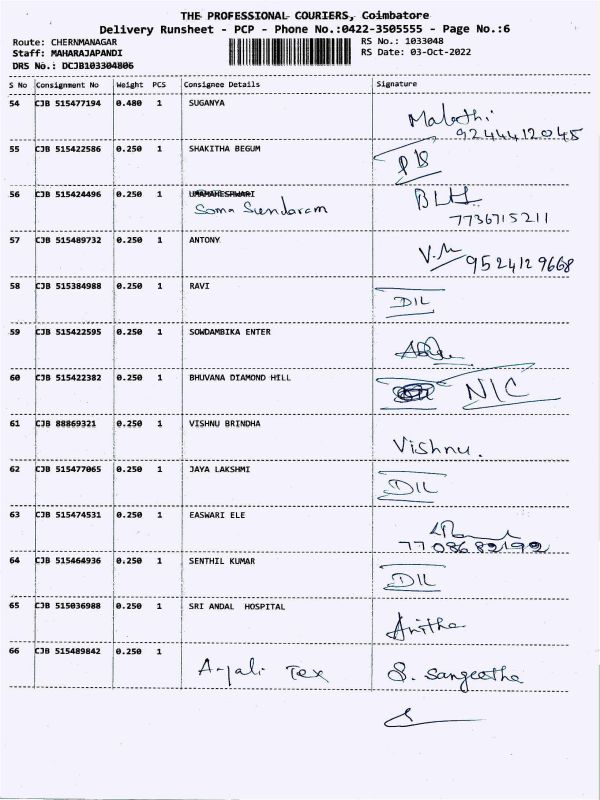 THE PROFESSIONAL COURIERS, Coimbatore
Delivery Runsheet - PCP - Phone No.:0422-3505555 - Page No.:6
Route: CHERNMANAGAR
RS No.: 1033048
Staff: MAHARAJAPANDI
RS Date: 03-Oct-2022
DRS No.: DCJB103304806
S No Consignment No Weight PCS Consignee Details Signature
54 CJB 515477194 0.480 1 SUGANYA
9244412045
55 CJB 515422586 0.250 1 SHAKITHA BEGUM
56 CJB 515424496 0.250 1 UMAMAHESHWARI
Soma Sundaram
7736715211
57 CJB 515489732 0.250 1 ANTONY
9524129668
58 CJB 515384988 0.250 1 RAVI
DIL
59 CJB 515422595 0.250 1 SOWDAMBIKA ENTER
60 CJB 515422382 0.250 1 BHUVANA DIAMOND HILL
NIC
61 CJB 88869321 0.250 1 VISHNU BRINDHA
Vishnu.
62 CJB 515477065 0.250 1 JAYA LAKSHMI
DIL
63 CJB 515474531 0.250 1 EASWARI ELE
7708682192
64 CJB 515464936 0.250 1 SENTHIL KUMAR
DIL
65 CJB 515036988 0.250 1 SRI ANDAL HOSPITAL
Anitha
66 CJB 515489842 0.250 1
Anjali Tex S. Sangeetha